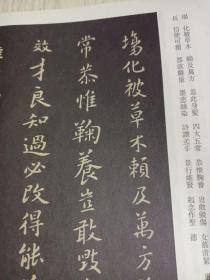 場 化被草木 賴及萬方 蓋此身髮 四大五常 恭惟鞠養 豈敢毀傷 女慕貞絜
長 信使可覆 器欲難量 墨悲絲染 詩讚羔羊 景行維賢 剋念作聖 德
場化被草木賴及萬方
常恭惟鞠養豈敢毀
效才良知過必改得能